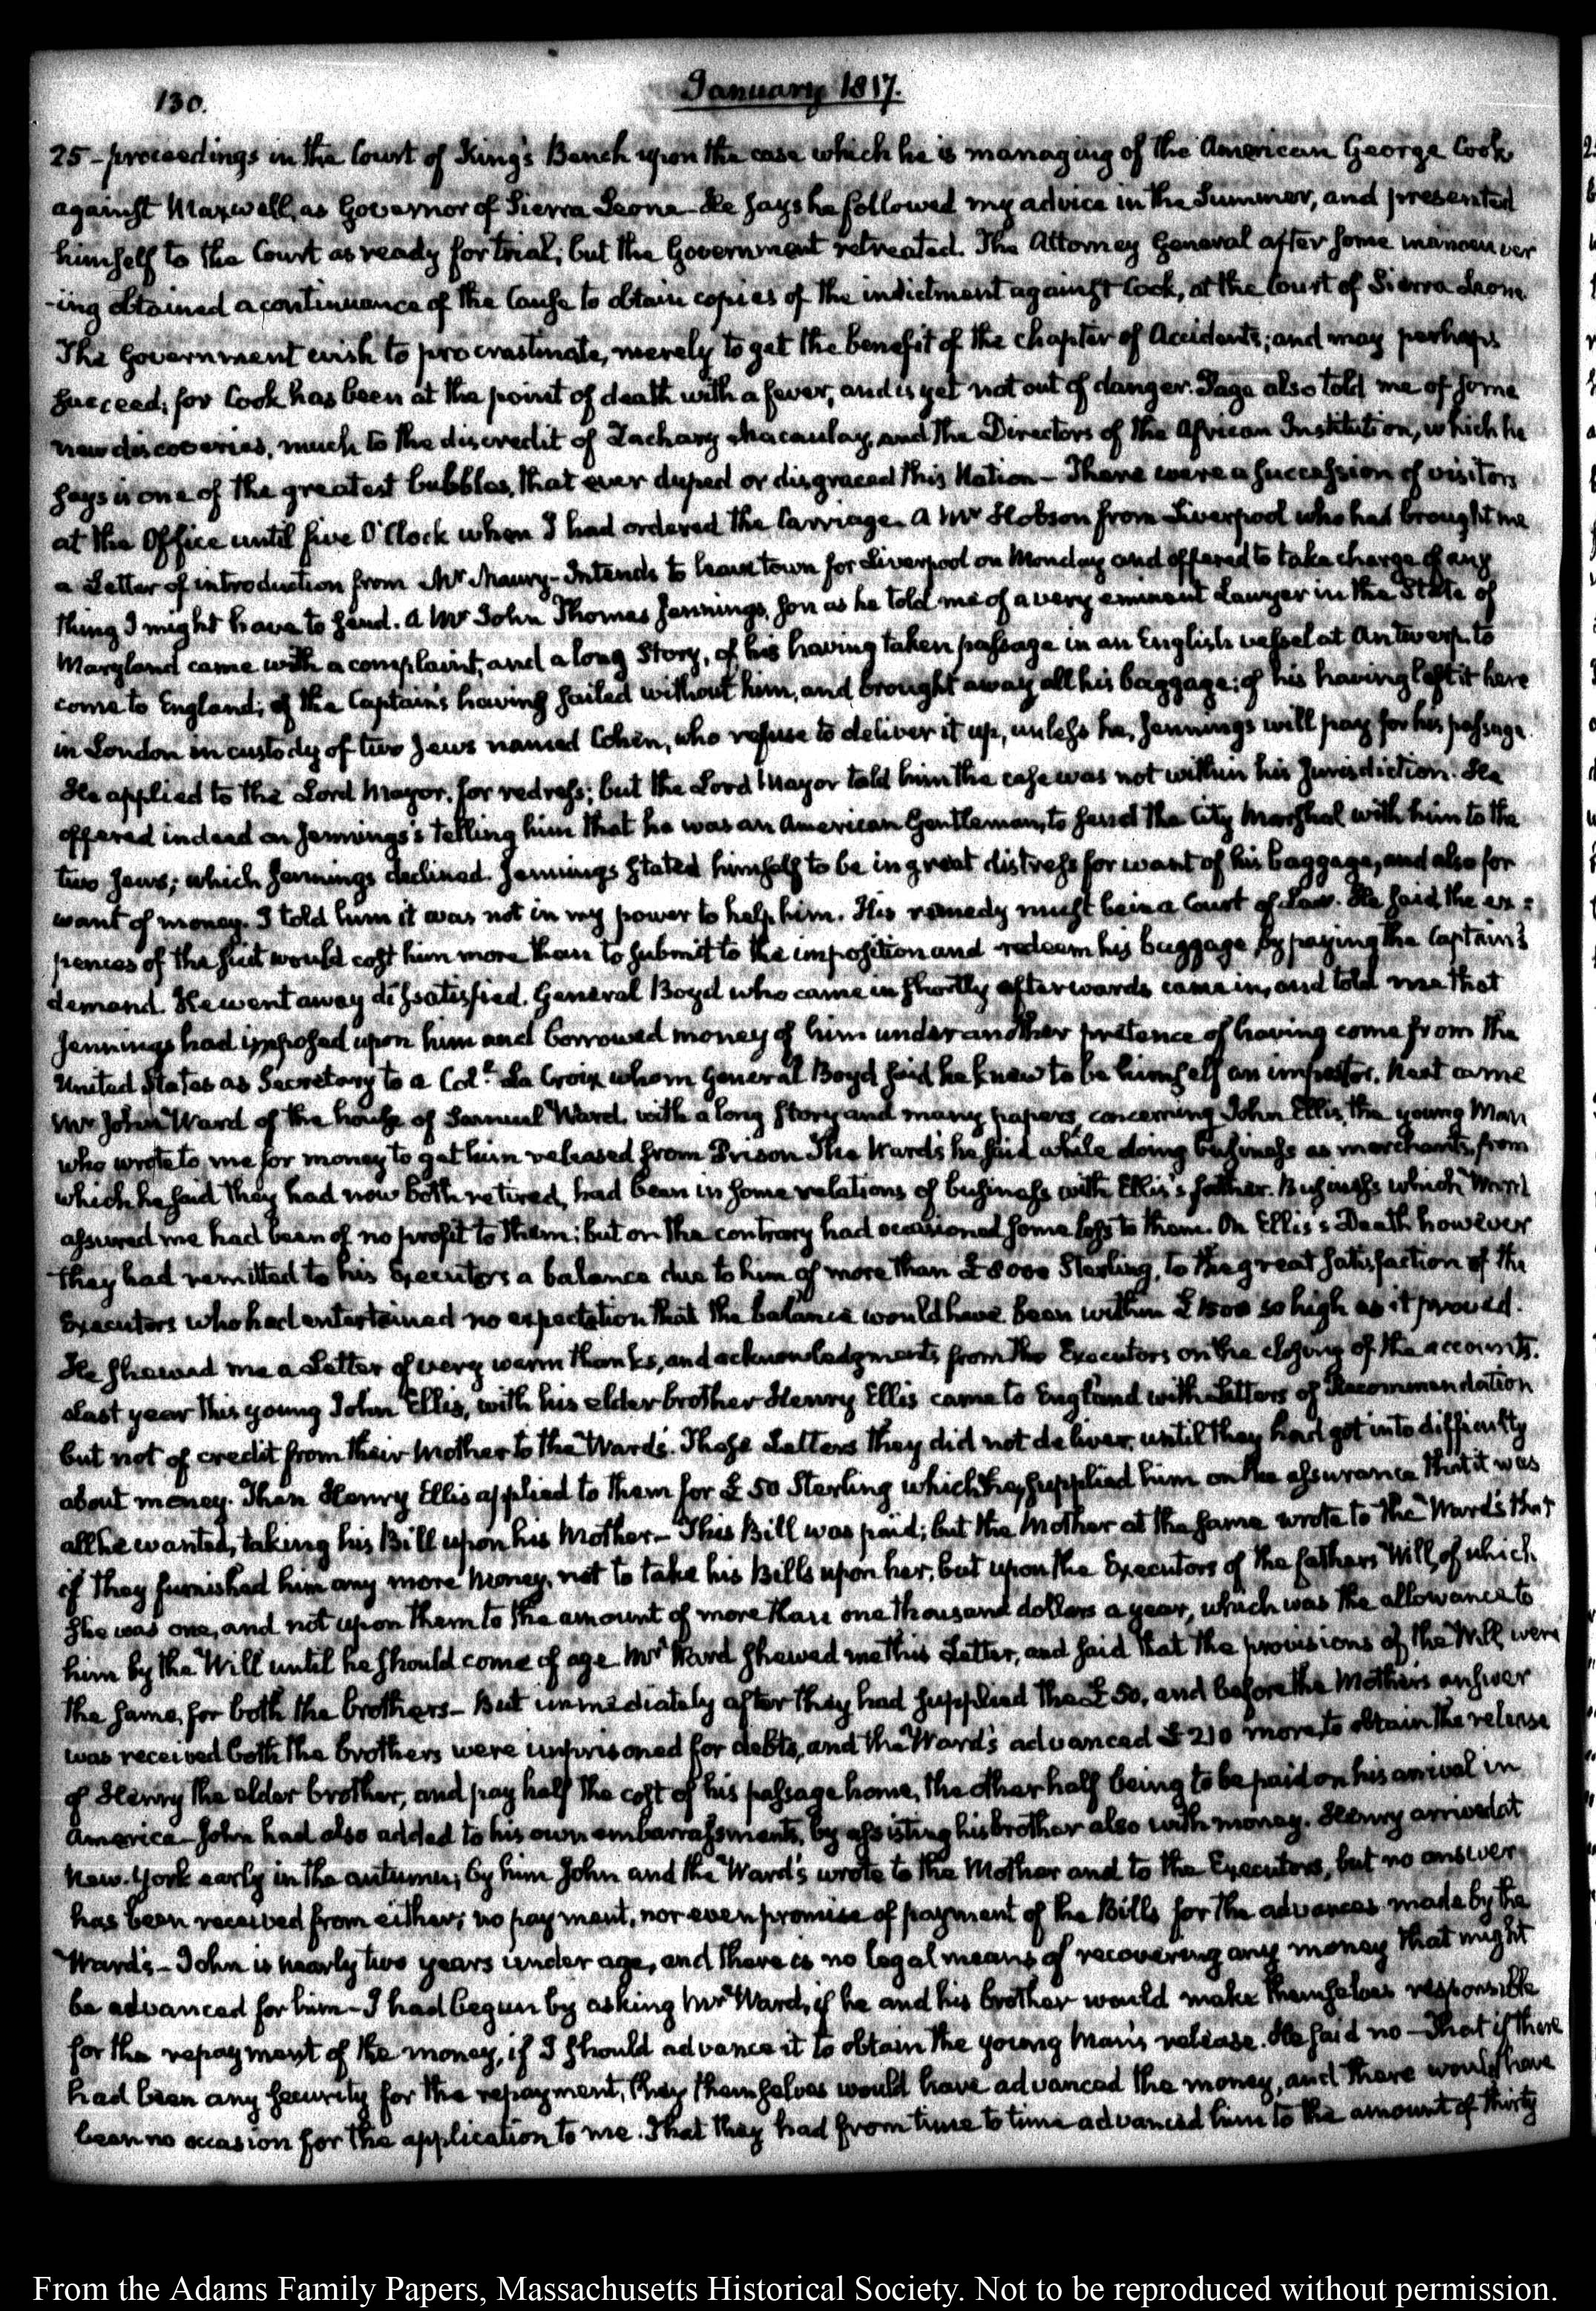 130.
January 1817.
25 - proceedings in the Court of King's Bench upon the case which he is managing of the American George Cook
against Maxwell, as Governor of Sierra Leone - He says he followed my advice in the Summer, and presented
himself to the Court as ready for trial; but the Government retreated. The Attorney General after some manoeuver
-ing obtained a continuance of the Cause to obtain copies of the indictment against Cook, at the Court of Sierra Leone.
The Government wish to procrastinate, merely to get the benefit of the chapter of Accidents; and may perhaps
succeed; for Cook has been at the point of death with a fever, and is yet not out of danger. Page also told me of some
new discoveries, much to the discredit of Zachary Macaulay, and the Directors of the African Institution, which he
says is one of the greatest bubbles, that ever duped or disgraced this Nation - There were a succession of visitors
at the Office until five O'Clock when I had ordered the Carriage. A Mr Hobson from Liverpool who had brought me
a Letter of introduction from Mr Maury - Intends to leave town for Liverpool on Monday and offered to take charge of any
thing I might have to send. A Mr John Thomas Jennings, son as he told me of a very eminent Lawyer in the State of
Maryland came with a complaint, and a long Story, of his having taken passage in an English vessel at Antwerp, to
come to England; of the Captain's having sailed without him, and brought away all his baggage; of his having left it here
in London in custody of two Jews named Cohen, who refuse to deliver it up, unless he, Jennings will pay for his passage.
He applied to the Lord Mayor, for redress; but the Lord Mayor told him the case was not within his Jurisdiction. He
offered indeed on Jennings's telling him that he was an American Gentleman, to send the City Marshal with him to the
two Jews; which Jennings declined. Jennings stated himself to be in great distress for want of his baggage, and also for
want of money. I told him it was not in my power to help him. His remedy must be in a Court of Law. He said the ex=
pences of the suit would cost him more than to submit to the imposition and redeem his baggage by paying the Captain's
demand. He went away dissatisfied. General Boyd who came in shortly afterwards came in, and told me that
Jennings had imposed upon him and borrowed money of him under another pretence of having come from the
United States as Secretary to a Coll. La Croix whom General Boyd said he knew to be himself an impostor. Next came
Mr John Ward of the house of Samuel Ward, with a long story and many papers, concerning John Ellis, the young Man
who wrote to me for money to get him released from Prison The Ward's he said while doing business as merchants, from
which he said they had now both retired, had been in some relations of business with Ellis's father. Business which Ward
assured me had been of no profit to them; but on the contrary had occasioned some loss to them. On Ellis's Death however
they had remitted to his Executors a balance due to him of more than £8000 Sterling, to the great satisfaction of the
Executors who had entertained no expectation that the balance would have been within £1500 so high as it proved.
He shewed me a Letter of very warm thanks, and acknowledgments from the Executors on the closing of the accounts.
Last year this young John Ellis, with his elder brother Henry Ellis came to England with Letters of Recommendation
but not of credit from their Mother to the Ward's. These Letters they did not deliver, until they had got into difficulty
about money. Then Henry Ellis applied to them for £50 Sterling which they supplied him on the assurance that it was
all he wanted, taking his Bill upon his Mother - This Bill was paid; but the Mother at the same wrote to the Ward's that
if they furnished him any more Money, not to take his Bills upon her, but upon the Executors of the fathers Will, of which
she was one, and not upon them to the amount of more than one thousand dollars a year, which was the allowance to
him by the Will until he should come of age Mr Ward shewed me this Letter, and said that the provisions of the Will, were
the same, for both the brothers - But immediately after they had supplied the £50, and before the Mother's answer
was received both the brothers were imprisoned for debts, and the Ward's advanced £210 more, to obtain the release
of Henry the elder brother, and pay half the cost of his passage home, the other half being to be paid on his arrival in
America - John had also added to his own embarrassments, by assisting his brother also with money. Henry arrived at
New-York early in the autumn; by him John and the Ward's wrote to the Mother and to the Executors, but no answer
has been received from either; no payment, nor even promise of payment of the Bills for the advances made by the
Ward's - John is nearly two years under age, and there is no legal means of recovering any money that might
be advanced for him - I had begun by asking Mr Ward, if he and his brother would make themselves responsible
for the repayment of the money, if I should advance it to obtain the young Man's release. He said no - That if there
had been any security for the repayment, they themselves would have advanced the money, and there would have
been no occasion for the application to me. That they had from time to time advanced him to the amount of thirty
From the Adams Family Papers, Massachusetts Historical Society. Not to be reproduced without permission.